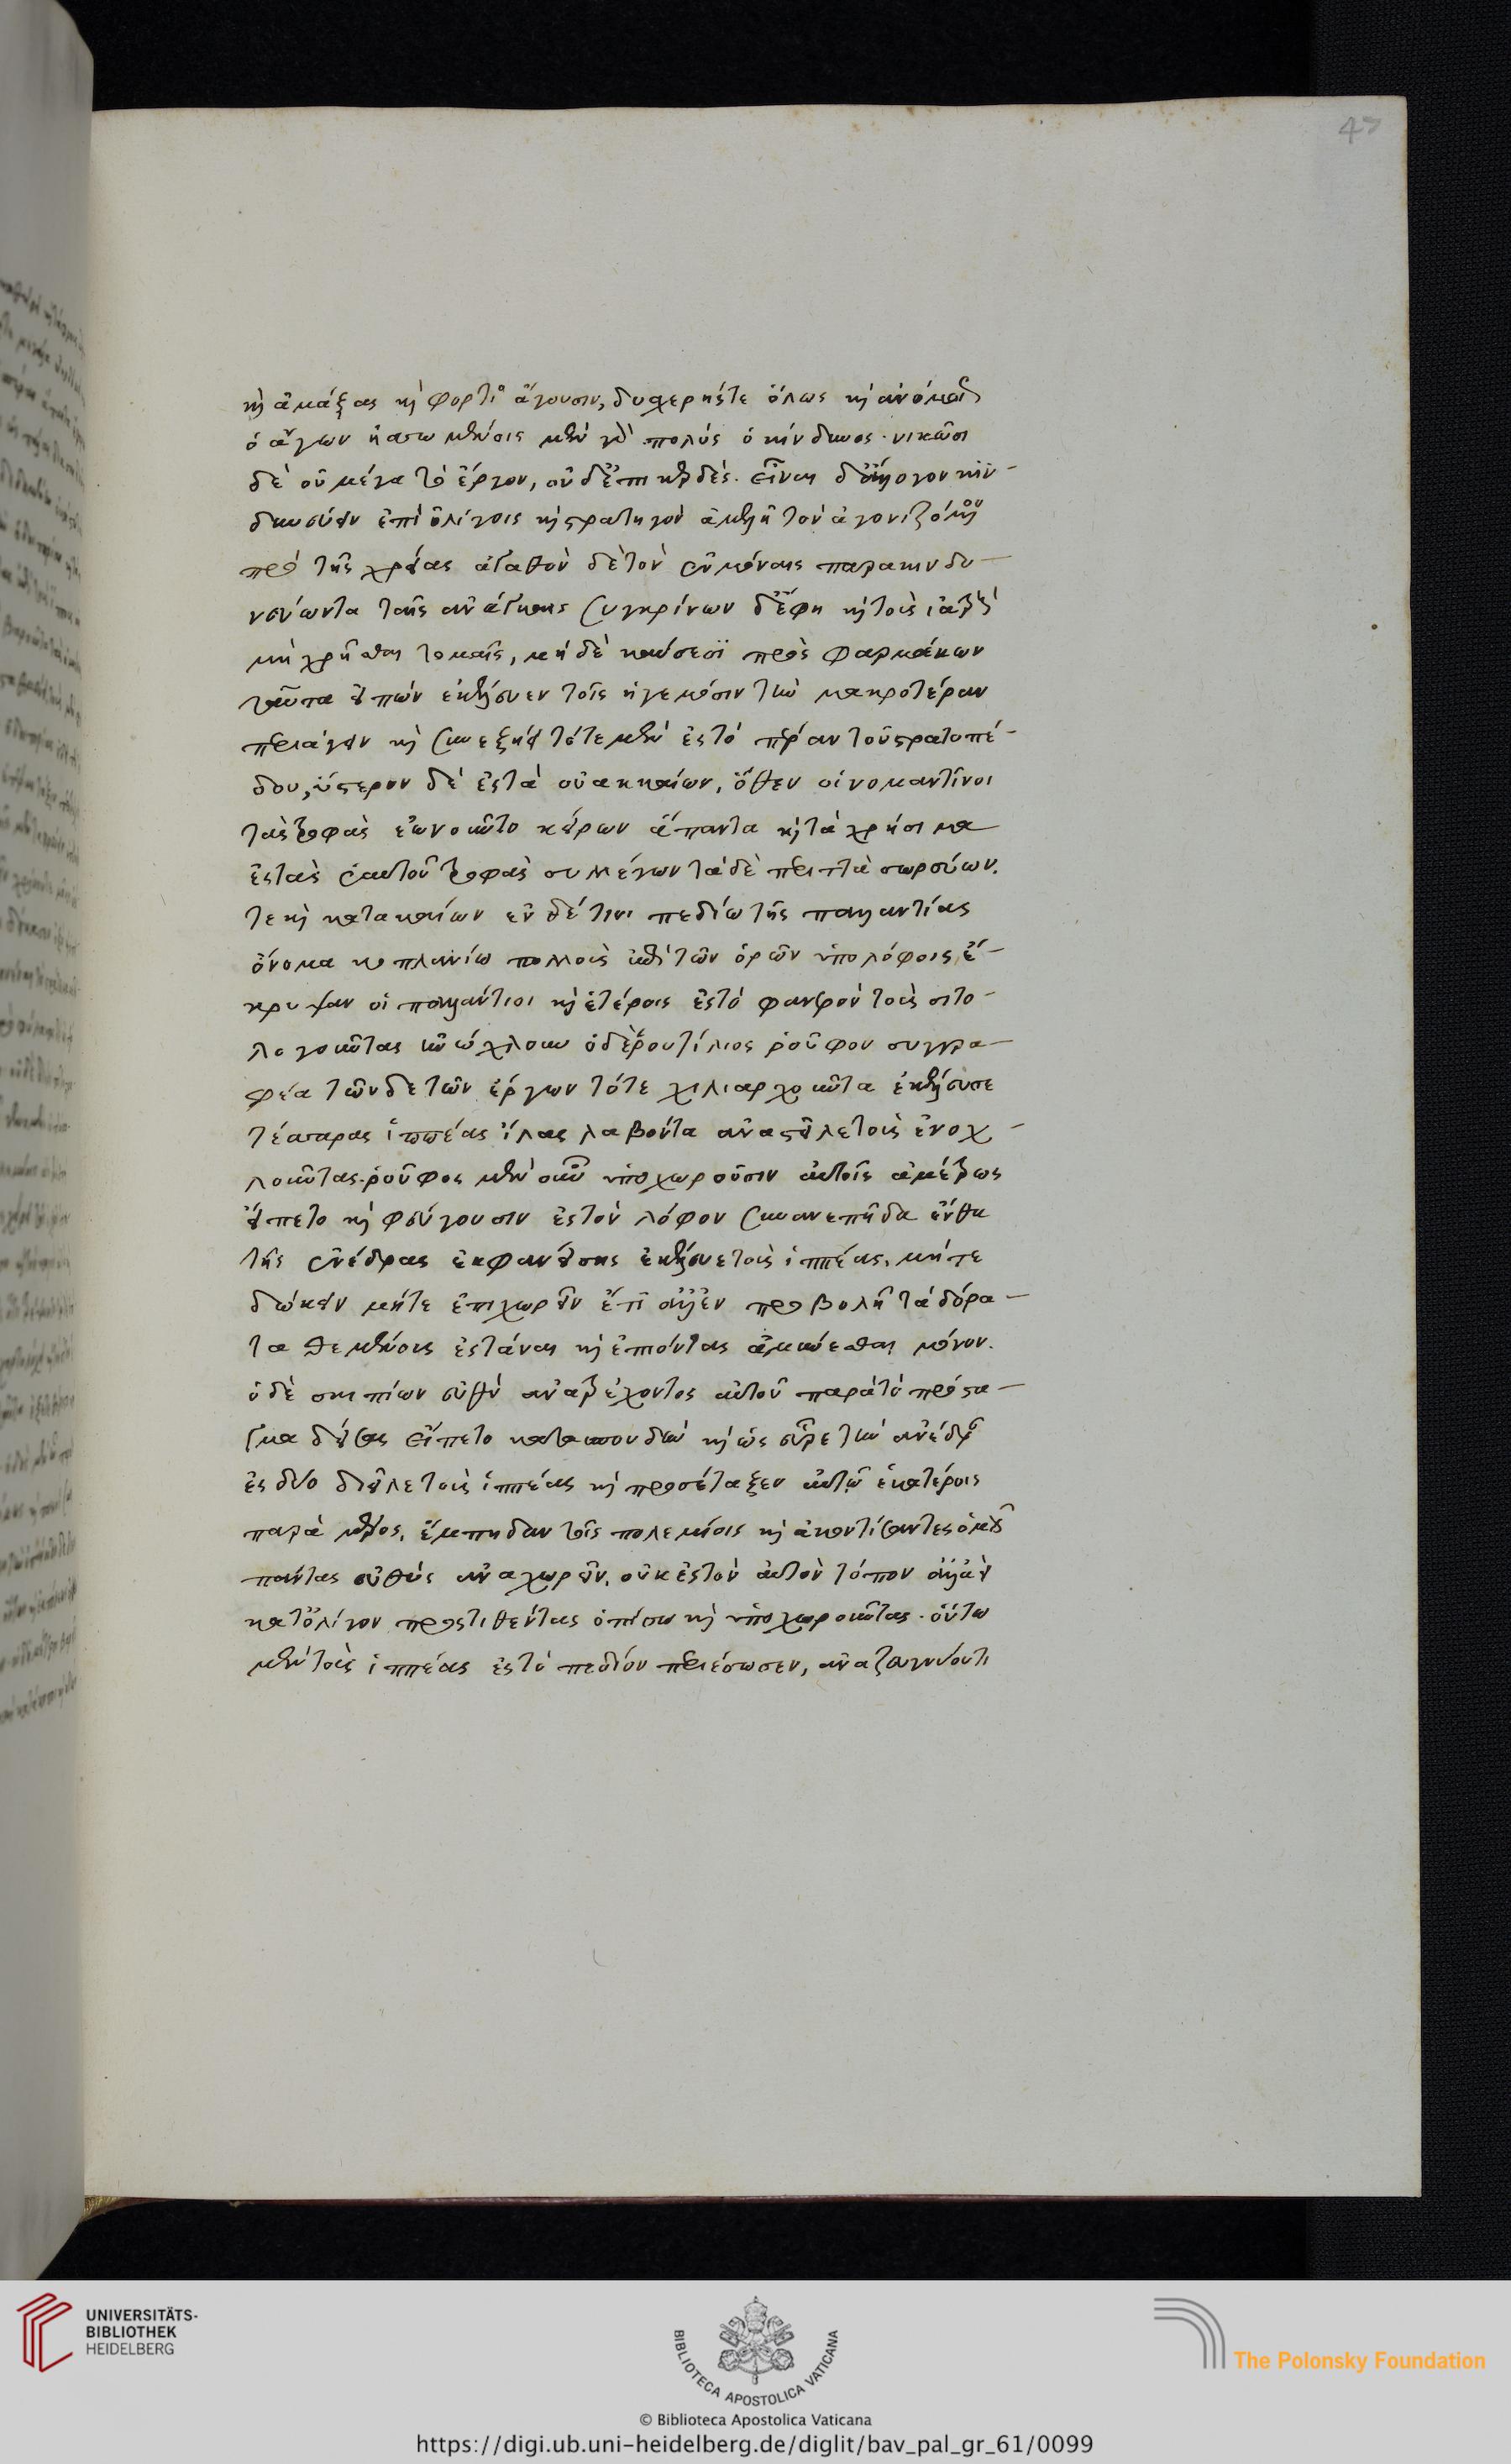 καὶ ἀμάξας καὶ φορτία ἄγουσιν, δυσχερήςτε ὅλως καὶ ἀνόμοιος
ὁ ἀγων ἡσσωμένοις μὲν γὰρ πολύς ὁ κίνδυνος· νικῶσι
δὲ οὐ μέγα τὸ ἔργον, οὐδἐπικερδές. εἶναι δἄλογον κιν-
δυνεύειν ἐπὶ ὀλίγοις καὶ στρατηγὸν ἀμελῆ τὸν ἀγονιζόμενον
πρὸ τῆς χρείας ἀγαθὸν δὲ τὸν ἐν μόναις παρακινδυ-
νεύωντα ταῖς ἀνάγκαις συγκρίνων δἔφη καὶ τοὺς ἰατροὺς
μὴ χρῆσθαι τομαῖς, μηδὲ καύσεσϊ πρὸς φαρμάκων
ταῦτα εἰπών ἐκέλευεν τοῖς ἡγεμόσιν τὴν μακροτέραν
περιάγειν καὶ συνεξήει τότε μὲν ἐς τὸ πέραν τοῦ στρατοπέ-
δου, ὕστερον δὲ ἐς τὰ οὐακκαίων, ὅθεν οἱ νομαντῖνοι
τὰς τροφὰς ἐωνοῦντο κείρων ἅπαντα καὶ τὰ χρήσιμα
ἐς τὰς ἑαυτοῦ τροφὰς συλλέγων τὰ δὲ περιττὰ σωρεύων.
τε καὶ κατακαίων ἐν δέ τινι πεδίω τῆς παλλαντίας
ὄνομα κοπλανίω πολλοὺς ἀπὸ τῶν ὁρῶν ὑπολόφοις ἔ-
κρυψαν οἱ παλλάντιοι καὶ ἑτέροις ἐς τὸ φανερὸν τοὺς σιτο-
λογοῦντας ἠνώχλουν ὁ δὲ ῥουτίλιος ῥοῦφον συγγρα-
φέα τῶνδε τῶν ἔργων τότε χιλιαρχοῦντα ἐκέλευσε
τέσσαρας ἱππέας ἴλας λαβόντα ἀναστεῖλε τοὺς ἐνοχ-
λοῦντας. ῥοῦφος μὲν οὖν ὑποχωροῦσιν αὐτοῖς ἀμέτρως
εἵπετο καὶ φεύγουσιν ἐς τὸν λόφον συνανεπήδα ἔνθα
τῆς ἐνέδρας ἐκφανείσης ἐκέλευε τοὺς ἱππέας, μήτε
διώκειν μήτε ἐπιχωρεῖν ἔτι ἀλλἐν προβολῆ τὰ δόρα-
τα θεμένοις ἑστάναι καὶ ἐπιόντας ἀμύνεσθαι μόνον.
ὁ δὲ σκιπίων εὐθὺ ἀνατρέχοντος αὐτοῦ παρὰ τὸ πρόστα-
γμα δείσας εἵπετο κατασπουδὴν καὶ ὡς εὗρε τὴν ἐνέδραν
ἐς δύο διεῖλε τοὺς ἱππέας καὶ προσέταξεν αὐτῶν ἑκατέροις
παρὰ μέρος, ἐμπηδαν τοῖς πολεμίοις καὶ ἀκοντίσαντες ὁμοῦ
πάντας εὐθὺς ἀναχωρεῖν, οὐκ ἐς τὸν αὐτὸν τόπον ἀλλἀεὶ
κατὀλίγον προστιθέντας ὀπίσω καὶ ὑποχωροῦντας. οὕτω
μὲν τοὺς ἱππέας ἐς τὸ πεδίον περιέσωσεν, ἀναζευγνύοντι
47
UNIVERSITÄTS-
BIBLIOTHEK
HEIDELBERG
BIBLIOTECA APOSTOLICA VATICANA
The Polonsky Foundation
© Biblioteca Apostolica Vaticana
https://digi.ub.uni-heidelberg.de/diglit/bav_pal_gr_61/0099